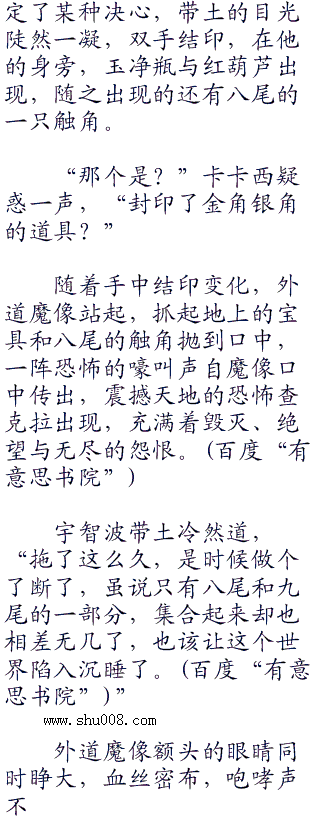 定了某种决心，带土的目光
陡然一凝，双手结印，在他
的身旁，玉净瓶与红葫芦出
现，随之出现的还有八尾的
一只触角。
“那个是？”卡卡西疑
惑一声，“封印了金角银角
的道具？”
随着手中结印变化，外
道魔像站起，抓起地上的宝
具和八尾的触角抛到口中，
一阵恐怖的嚎叫声自魔像口
中传出，震撼天地的恐怖查
克拉出现，充满着毁灭、绝
望与无尽的怨恨。(百度“有
意思书院”)
宇智波带土冷然道，
“拖了这么久，是时候做个
了断了，虽说只有八尾和九
尾的一部分，集合起来却也
相差无几了，也该让这个世
界陷入沉睡了。(百度“有意
思书院”)”
www.shu008.com
外道魔像额头的眼睛同
时睁大，血丝密布，咆哮声
不